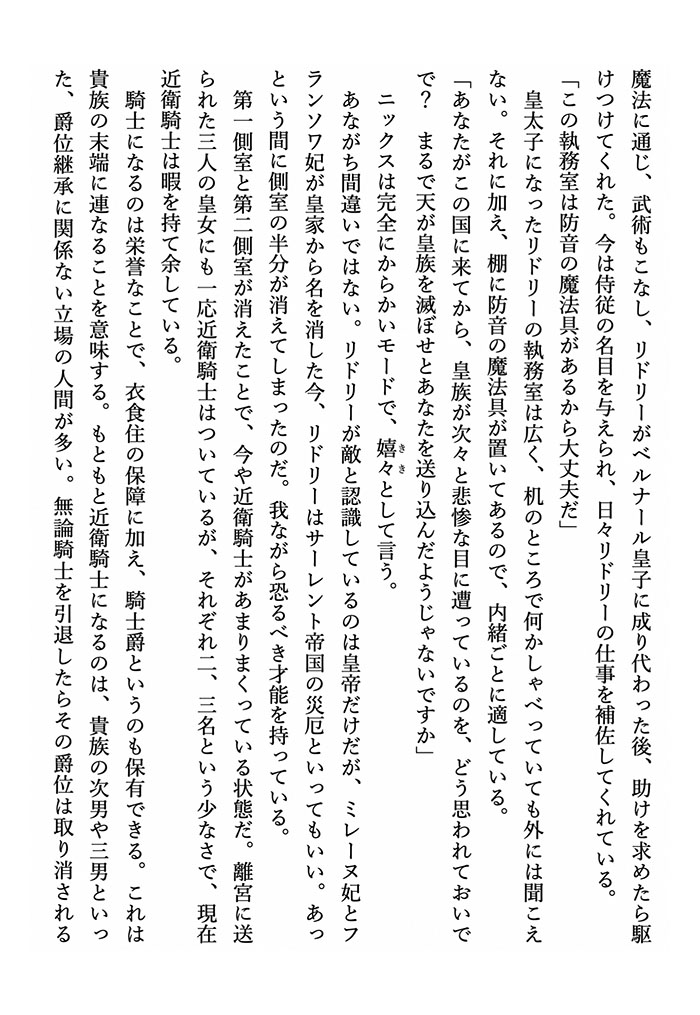 魔法に通じ、武術もこなし、リドリーがベルナール皇子に成り代わった後、助けを求めたら駆
けつけてくれた。今は侍従の名目を与えられ、日々リドリーの仕事を補佐してくれている。
「この執務室は防音の魔法具があるから大丈夫だ」
　皇太子になったリドリーの執務室は広く、机のところで何かしゃべっていても外には聞こえ
ない。それに加え、棚に防音の魔法具が置いてあるので、内緒ごとに適している。
「あなたがこの国に来てから、皇族が次々と悲惨な目に遭っているのを、どう思われておいで
で？　まるで天が皇族を滅ぼせとあなたを送り込んだようじゃないですか」
　ニックスは完全にからかいモードで、嬉々として言う。
　あながち間違いではない。リドリーが敵と認識しているのは皇帝だけだが、ミレーヌ妃とフ
ランソワ妃が皇家から名を消した今、リドリーはサーレント帝国の災厄といってもいい。あっ
という間に側室の半分が消えてしまったのだ。我ながら恐るべき才能を持っている。
　第一側室と第二側室が消えたことで、今や近衛騎士があまりまくっている状態だ。離宮に送
られた三人の皇女にも一応近衛騎士はついているが、それぞれ二、三名という少なさで、現在
近衛騎士は暇を持て余している。
　騎士になるのは栄誉なことで、衣食住の保障に加え、騎士爵というのも保有できる。これは
貴族の末端に連なることを意味する。もともと近衛騎士になるのは、貴族の次男や三男といっ
た、爵位継承に関係ない立場の人間が多い。無論騎士を引退したらその爵位は取り消される